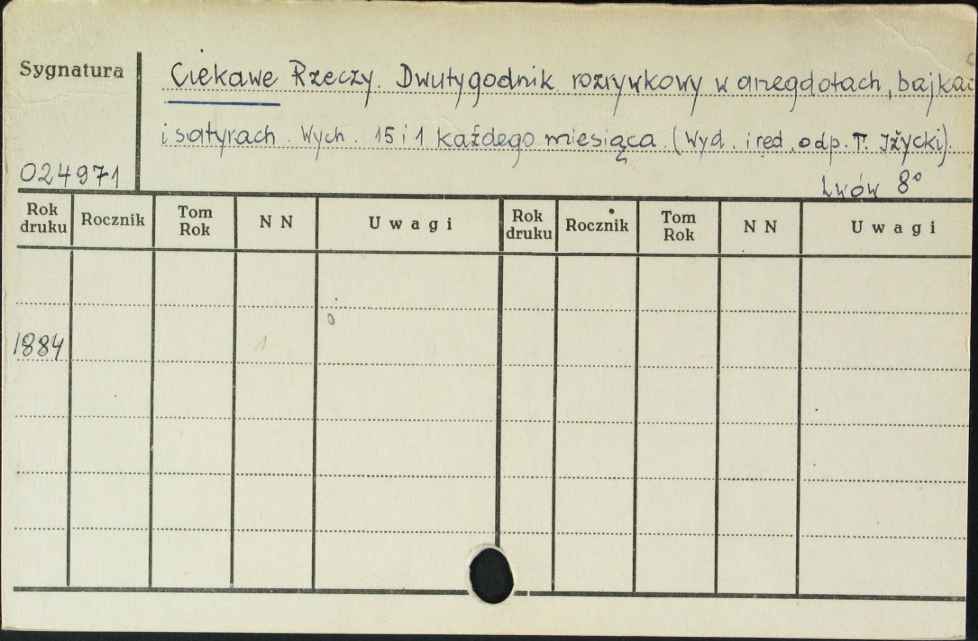 Sygnatura
Ciekawe Rzeczy. Dwutygodnik rozrywkowy w anegdotach, bajkac
i satyrach. Wych. 15 i 1 każdego miesiąca. (Wyd. i red. odp. T. Iżycki).
024971
Lwów 8°
Rok druku Rocznik Tom Rok N N Uwagi Rok druku Rocznik Tom Rok N N Uwagi
1884 1